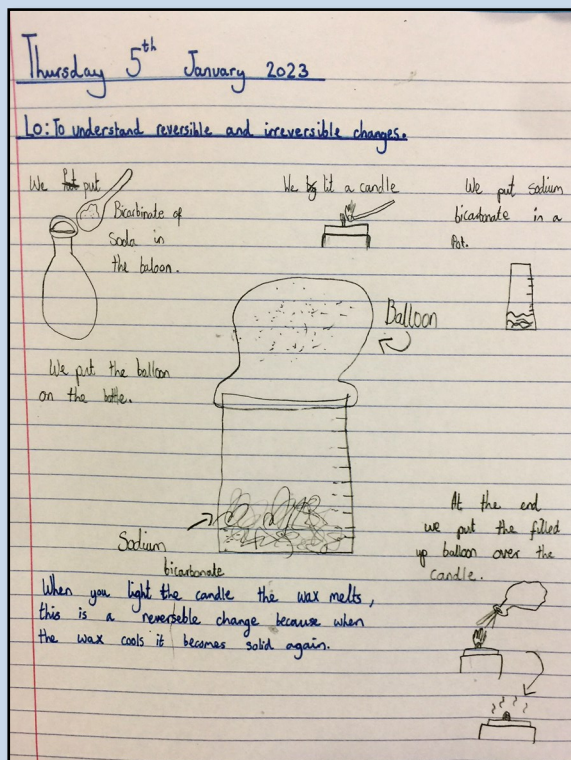 Thursday 5th January 2023
LO: To understand reversible and irreversible changes.
We put
Bicarbinate of
Soda in
the baloon.
We lit a candle
We put sodium
bicarbonate in a
Pot.
Balloon
We put the balloon
on the bottle.
Sodium
bicarbonate
At the end
we put the filled
up balloon over the
candle.
When you light the candle the wax melts,
this is a reverseble change because when
the wax cools it becomes solid again.